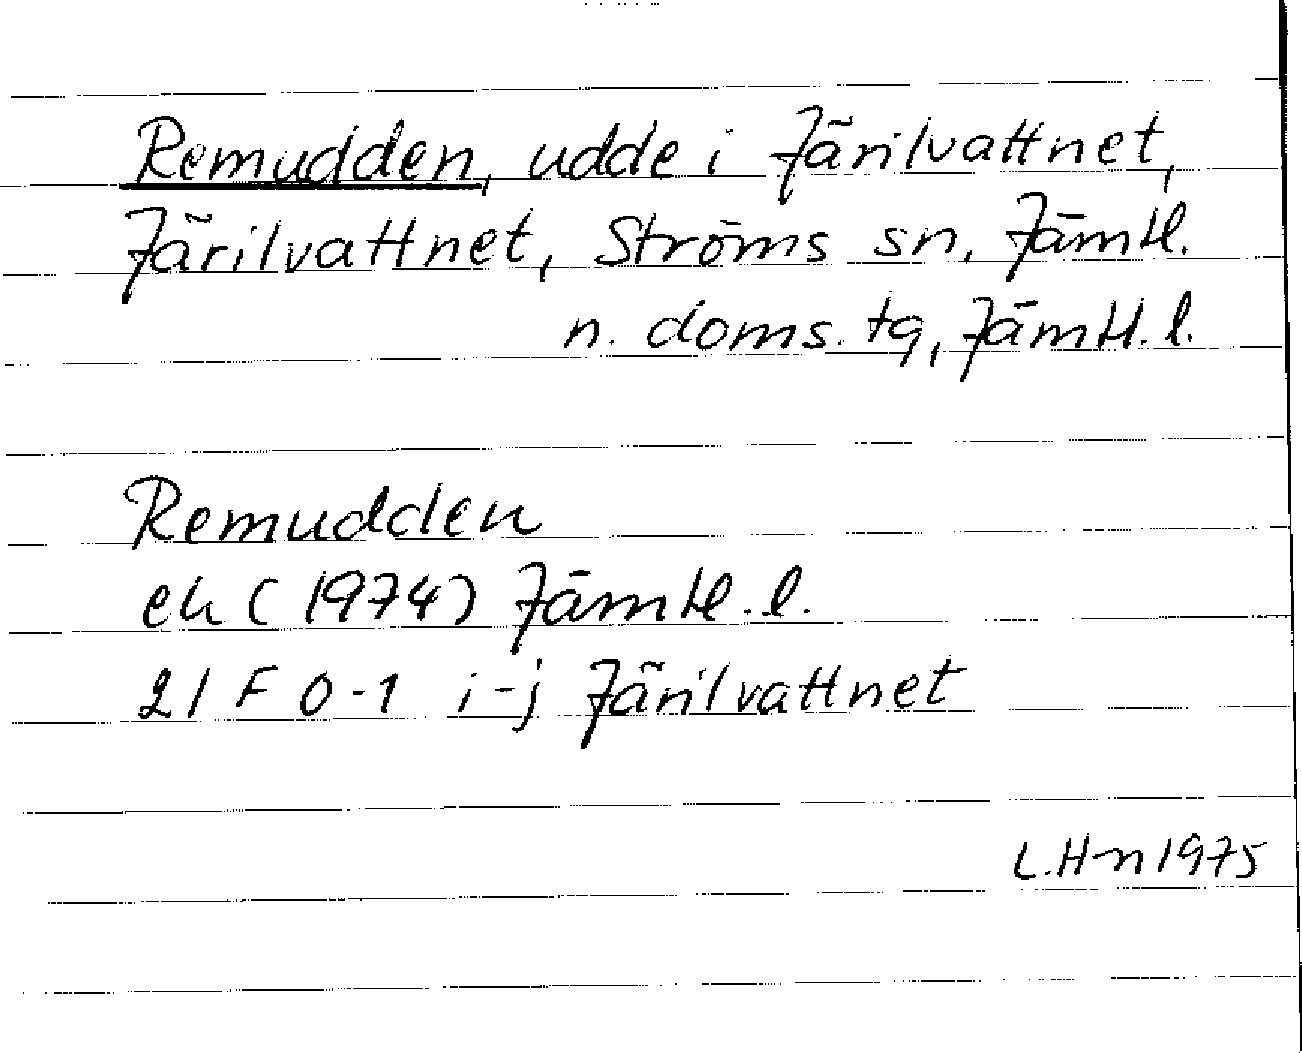 Remudden, udde i Järilvattnet,
Järilvattnet, Ströms sn, Jämtl.
n. doms. tg, Jämtl. l.
Remudden
ek (1974) Jämtl. l.
21 F 0-1 i-j Järilvattnet
L.H-n 1975